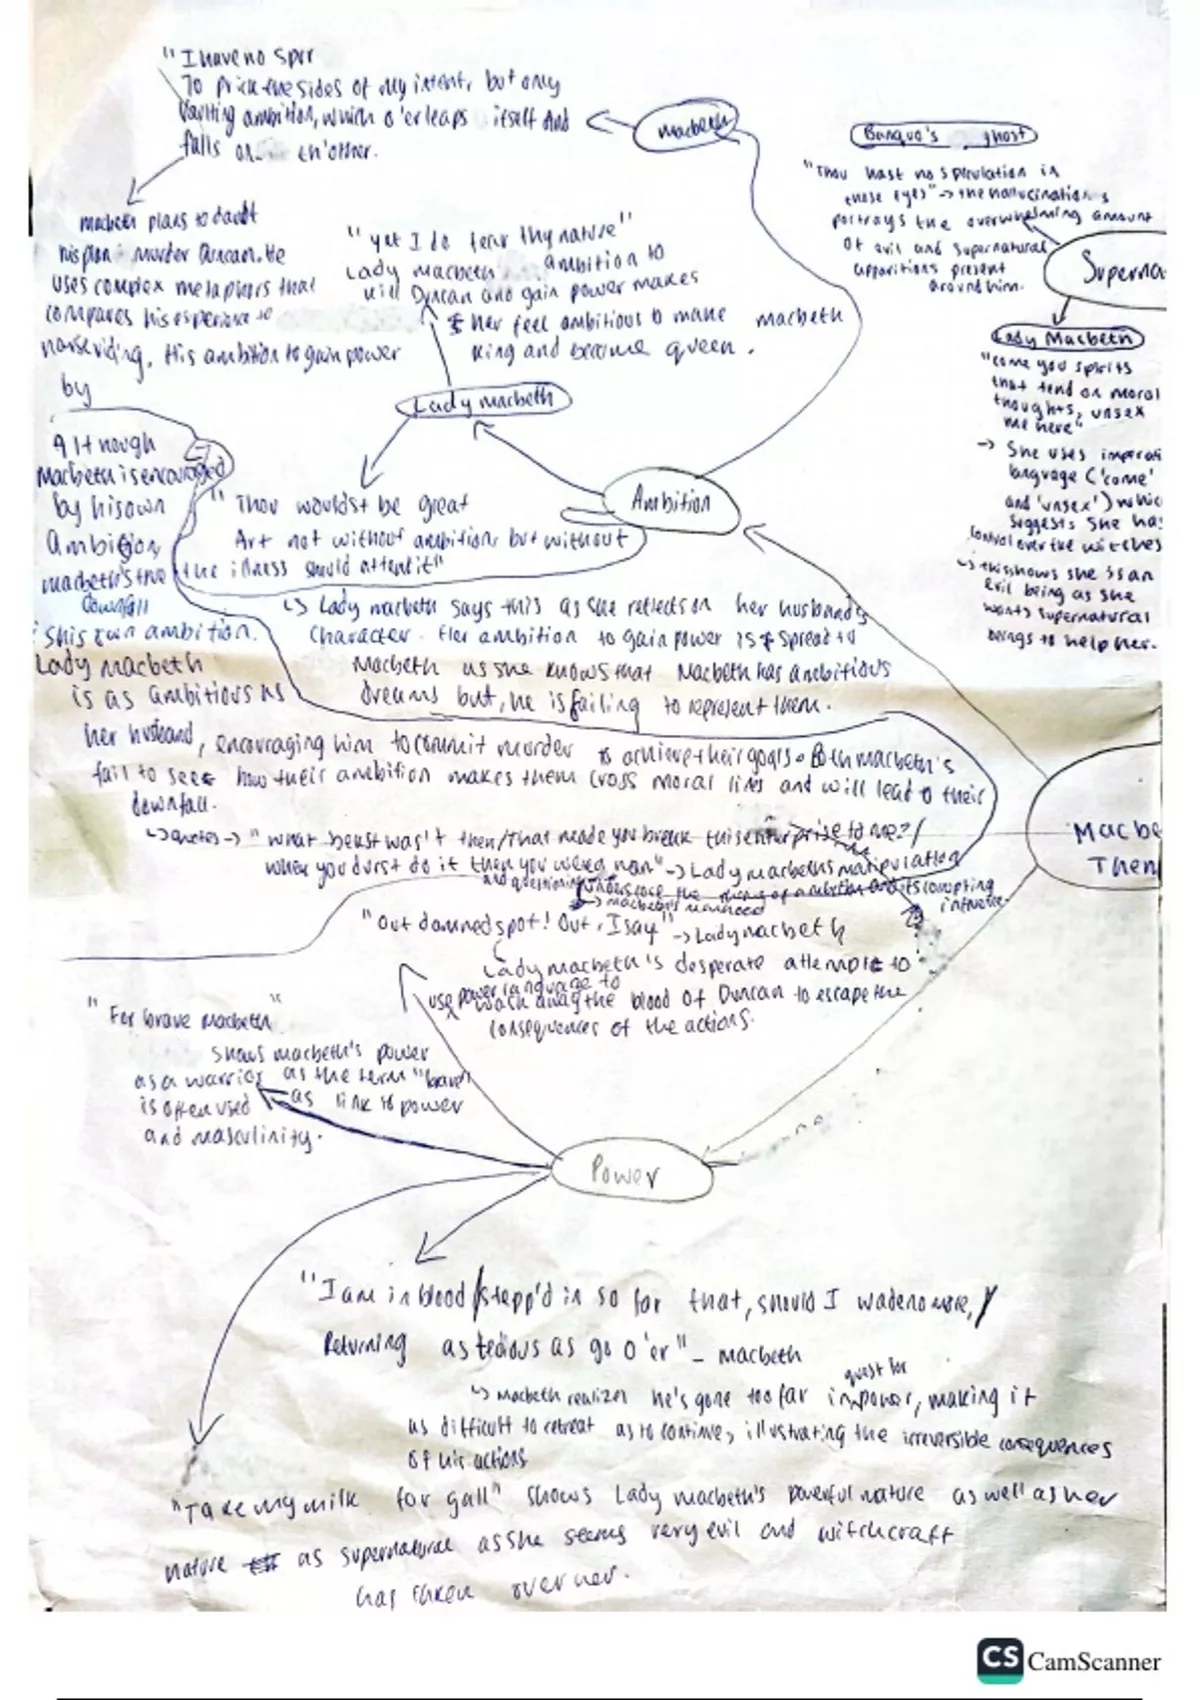 "I have no spur
To prick the sides of my intent, but only
Vaulting ambition, which o'erleaps itself and
falls on th'other.
Macbeth
Macbeth plans to doubt
his plan murder Duncan. He
uses complex metaphors that
compares his experience to
horse riding. His ambition to gain power
by
"yet I do fear thy nature"
Lady Macbeth ambition to
kill Duncan and gain power makes
her feel ambitious to make macbeth
king and become queen.
Lady macbeth
Ambition
Banquo's ghost
"Thou hast no speculation in
those eyes" -> the hallucinations
portrays the overwhelming amount
of evil and supernatural
apparitions present
around him.
Superna
Lady Macbeth
"come you spirits
that tend on moral
thoughts, unsex
me here"
-> She uses imperati
language ('come'
and 'unsex') whic
suggests she ha
control over the witches
↳ this shows she is an
evil being as she
wants supernatural
beings to help her.
Although
Macbeth is encouraged
by his own
Ambition
macbeth's true
downfall
is his own ambition.
Lady macbeth
is as ambitious as
her husband, encouraging him to commit murder to achieve their goals. Both macbeth's
fail to see how their ambition makes them cross moral lines and will lead to their
downfall.
"Thou wouldst be great
Art not without ambition, but without
the illness should attend it"
↳ Lady macbeth says this as she reflects on her husband's
character. Her ambition to gain power is spread to
Macbeth as she knows that Macbeth has ambitious
dreams but, he is failing to represent them.
↳ quotes -> "what beast was't then/that made you break this enterprise to me?/
when you durst do it then you were a man" -> Lady macbeth's manipulation
and questioning
-> macbeth's manhood
"Out damned spot! Out, I say" -> Lady macbeth
Lady macbeth's desperate attempt to
use power language to
wash away the blood of Duncan to escape the
consequences of the actions.
Macbe
Them
"For brave macbeth"
shows macbeth's power
as a warrior as the term "brave"
is often used as link to power
and masculinity.
Power
"I am in blood/stepp'd in so far that, should I wade no more,/
Returning as tedious as go o'er" - macbeth
quest for
↳ Macbeth realizes he's gone too far in power, making it
as difficult to retreat as to continue, illustrating the irreversible consequences
of his actions
"Take my milk for gall" shows Lady macbeth's powerful nature as well as her
nature as supernatural as she seems very evil and witchcraft
has taken over her.
CS CamScanner